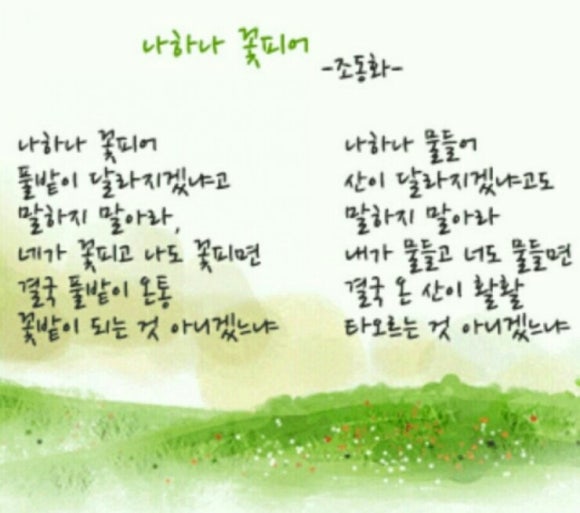 나하나 꽃피어
-조동화-
나하나 꽃피어
풀밭이 달라지겠냐고
말하지 말아라,
네가 꽃피고 나도 꽃피면
결국 풀밭이 온통
꽃밭이 되는 것 아니겠느냐
나하나 물들어
산이 달라지겠냐고도
말하지 말아라
내가 물들고 너도 물들면
결국 온 산이 활활
타오르는 것 아니겠느냐